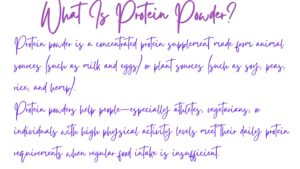 What Is Protein Powder?
Protein powder is a concentrated protein supplement made from animal
sources (such as milk and eggs) or plant sources (such as soy, peas,
rice, and hemp).
Protein powders help people—especially athletes, vegetarians, or
individuals with high physical activity levels meet their daily protein
requirements when regular food intake is insufficient.